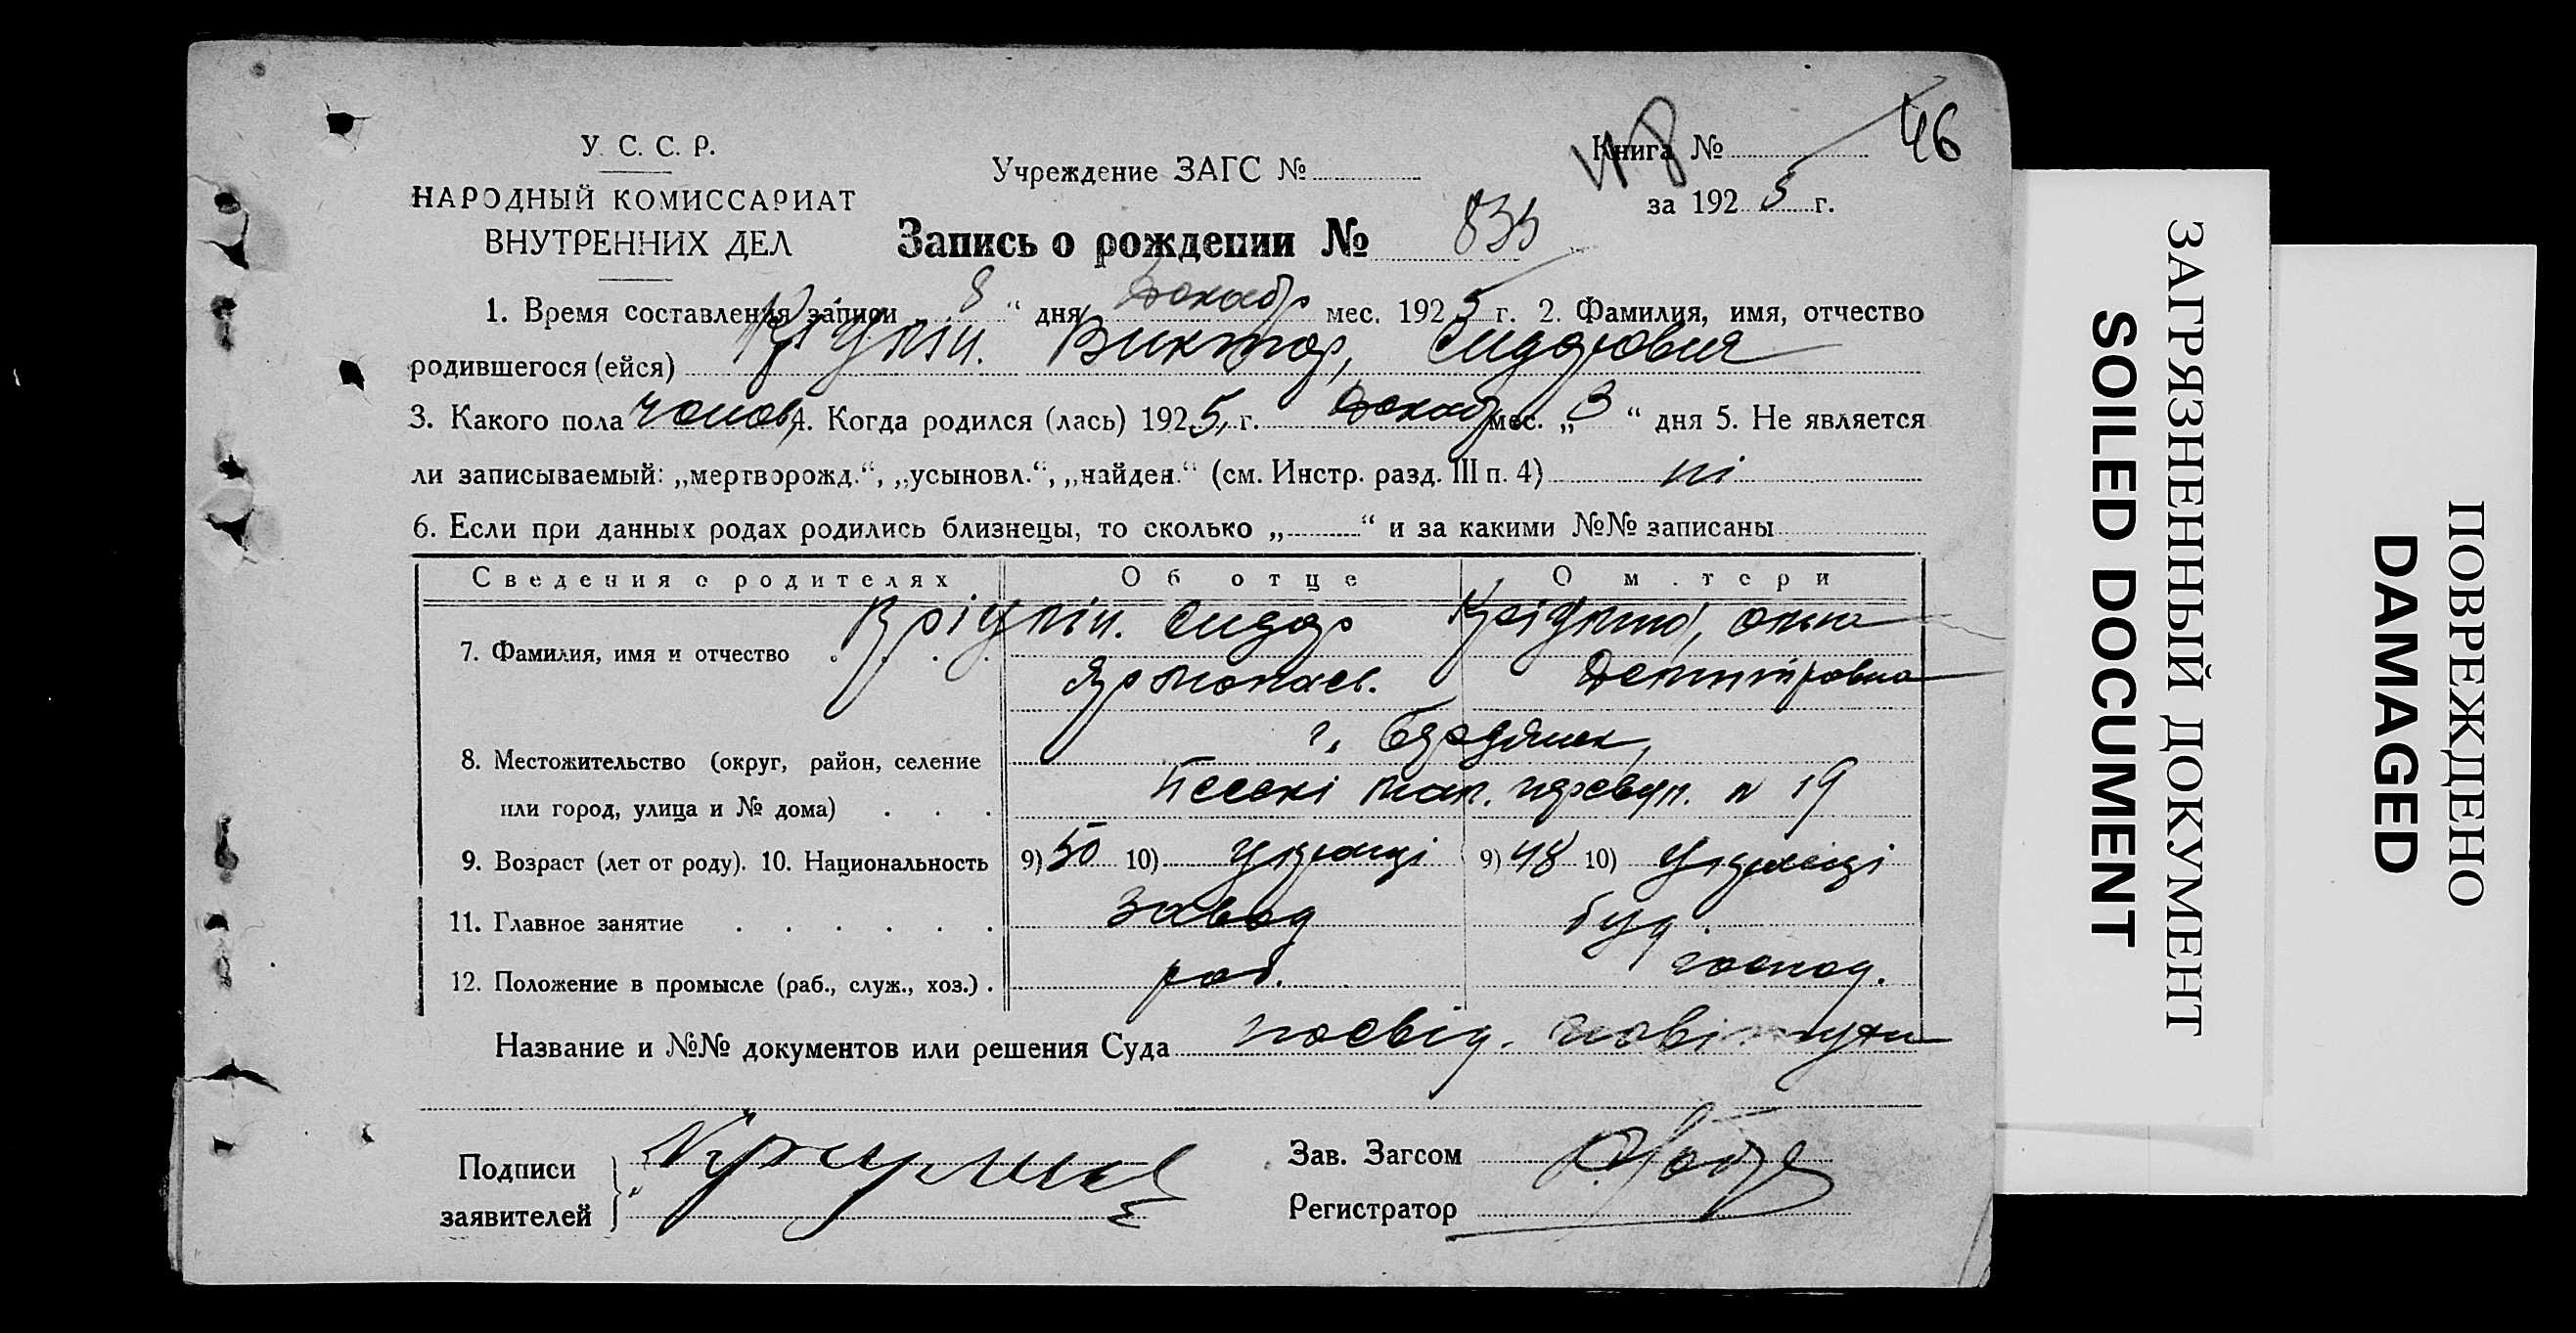 46
У. С. С. Р.
НАРОДНЫЙ КОМИССАРИАТ
ВНУТРЕННИХ ДЕЛ
Учреждение ЗАГС №
Книга №
за 1925 г.
Запись о рождении № 835
1. Время составления записи „ 8 “ дня Декабр мес. 1925 г. 2. Фамилия, имя, отчество
родившегося (ейся) Виктор,
3. Какого пола чолов. 4. Когда родился (лась) 1925 г. Декабр мес. „ 3 “ дня 5. Не является
ли записываемый: „мертворожд.“, „усыновл.“, „найден.“ (см. Инстр. разд. III п. 4) ні
6. Если при данных родах родились близнецы, то сколько „ “ и за какими №№ записаны
Сведения о родителях Об отце О м.тери
7. Фамилия, имя и отчество Сидор
г. Бердянск,
8. Местожительство (округ, район, селение
или город, улица и № дома) № 19
9. Возраст (лет от роду). 10. Национальность 9) 50 10) 9) 48 10)
11. Главное занятие завод буд.
12. Положение в промысле (раб., служ., хоз.) роб. господ.
Название и №№ документов или решения Суда посвід.
Подписи
заявителей
Зав. Загсом
Регистратор
ЗАГРЯЗНЕННЫЙ ДОКУМЕНТ
SOILED DOCUMENT
ПОВРЕЖДЕНО
DAMAGED